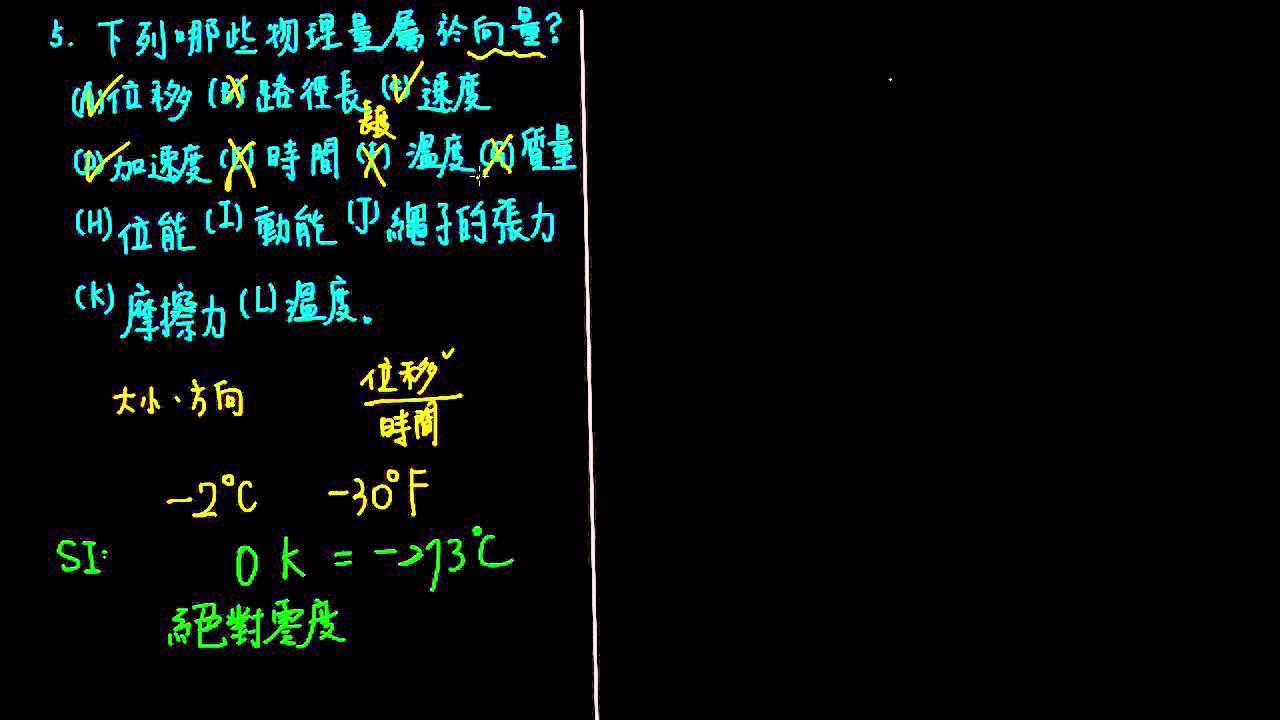 5. 下列哪些物理量屬於向量?
(A)位移 (B)路徑長 (C)速度
長度
(D)加速度 (E)時間 (F)溫度 (G)質量
(H)位能 (I)動能 (J)繩子的張力
(K)摩擦力 (L)溫度.
大小、方向
位移
時間
-2°C -30°F
SI: 0 K = -273°C
絕對零度